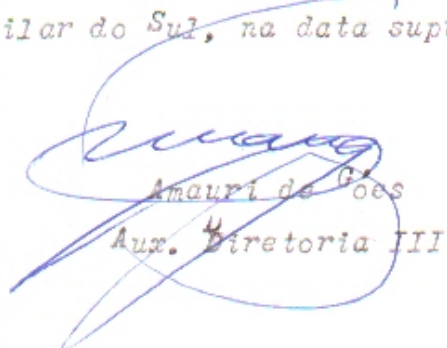 ilar do Sul, na data sup
Amauri de Góes
Aux. Diretoria III